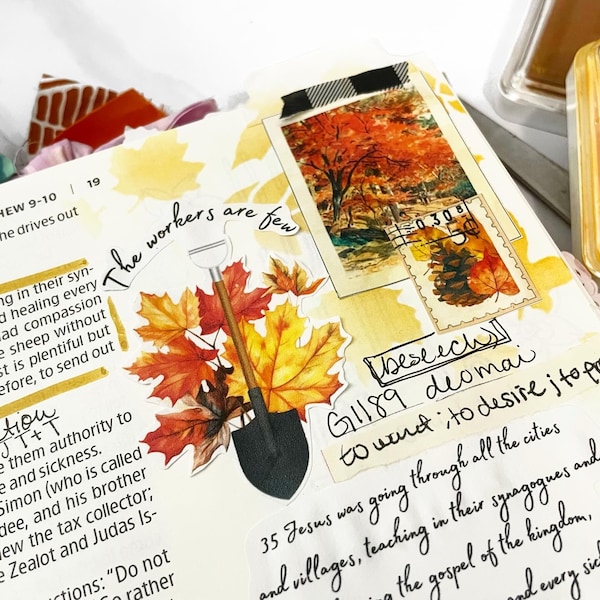 HEW 9-10 | 19
he drives out
ing in their syn-
d healing every
ad compassion
e sheep without
st is plentiful but
efore, to send out
T + T
e them authority to
e and sickness.
Simon (who is called
dee, and his brother
ew the tax collector;
e Zealot and Judas Is-
ctions: “Do not
So rather
The workers are few
0308
5¢
(beseech)
G1189 deomai
to want; to desire; to pr
35 Jesus was going through all the cities
and villages, teaching in their synagogues and
the gospel of the kingdom,
and every sic